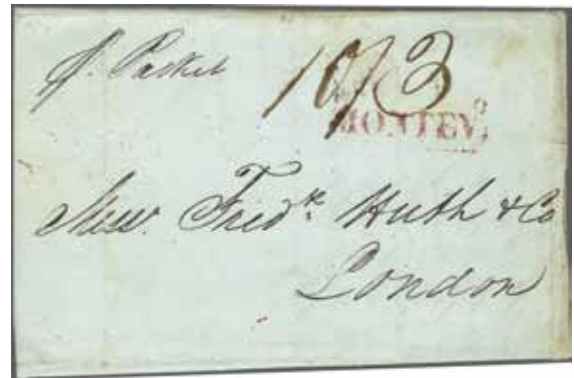 p. Packet
10/3
MONTEV.º
Messrs. Fredk. Huth & Co
London